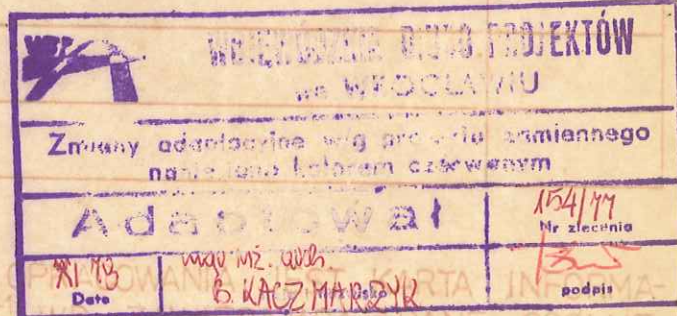 WBP
WOJEWÓDZKIE BIURO PROJEKTÓW
we WROCŁAWIU
Zmiany adaptacyjne wg projektu zamiennego
naniesiono kolorem czerwonym
Adaptował
154/77
Nr zlecenia
XI 78
Data
mgr inż. arch.
B. KACZMARZYK
podpis
OPRACOWANIA JEST KARTA INFORMA-